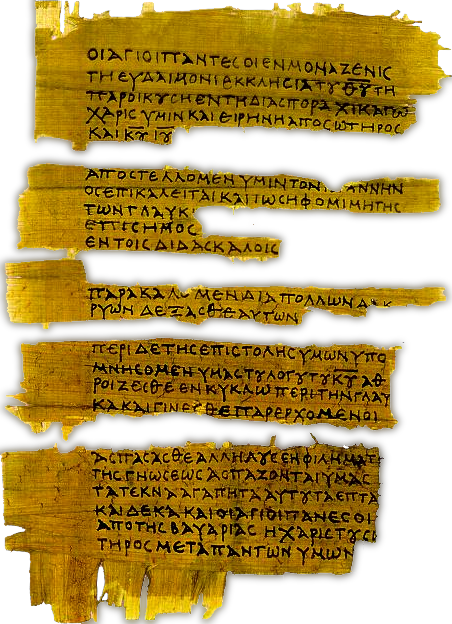 ΟΙΑΓΙΟΙΠΑΝΤΕϹΟΙΕΝΜΟΝΑΖΕΝΙϹ
ΤΗΕΥΔΑΙΜΟΝΙΕΚΚΛΗϹΙΑΤȢΘȢΤΗ
ΠΑΡΟΙΚȢϹΗΕΝΤΗΔΙΑϹΠΟΡΑ ΧΙΚΑΓΩ
ΧΑΡΙϹΥΜΙΝΚΑΙΕΙΡΗΝΗΑΠΟϹΩΤΗΡΟϹ
ΚΑΙΚȢΙȢ
ΑΠΟϹΤΕΛΛΟΜΕΝΥΜΙΝΤΟΝ ΑΝΝΗΝ
ΟϹΕΠΙΚΑΛΕΙΤΑΙΚΑΙΙΩϹΗΦΟΜΙΜΗΤΗϹ
ΤΩΝΓΛΑΥΚ
ΕΠΙϹΗΜΟϹ
ΕΝΤΟΙϹΔΙΔΑϹΚΑΛΟΙϹ
ΠΑΡΑΚΑΛ ΜΕΝΔΙΑΠΟΛΛΩΝΔ Κ
ΡΥΩΝΔΕΞΑϹΘΕΑΥΤΩΝ
ΠΕΡΙΔΕΤΗϹΕΠΙϹΤΟΛΗϹΥΜΩΝΥΠΟ
ΜΝΗϹΟΜΕΝΥΜΑϹΤȢΛΟΓȢΤȢΚȢΑΘ
ΡΟΙΖΕϹΘΕΕΝΚΥΚΛΩΠΕΡΙΤΗΝΓΛΑΥ
ΚΑΚΑΙΓΙΝΕϹΘΕΠΑΡΕΡΧΟΜΕΝΟΙ
ΑϹΠΑϹΑϹΘΕΑΛΛΗΛȢϹΕΝΦΙΛΗΜΑΤΙ
ΤΗϹΓΝΩϹΕΩϹΑϹΠΑΖΟΝΤΑΙΥΜΑϹ
ΤΑΤΕΚΝΑΑΓΑΠΗΤΑΑΥΤȢΤΑΕΠΤΑ
ΚΑΙΔΕΚΑΚΑΙΟΙΑΓΙΟΙΠΑΝΕϹΟΙ
ΑΠΟΤΗϹΒΑΥΑΡΙΑϹ ΗΧΑΡΙϹΤȢϹ
ΤΗΡΟϹΜΕΤΑΠΑΝΤΩΝΥΜΩΝ